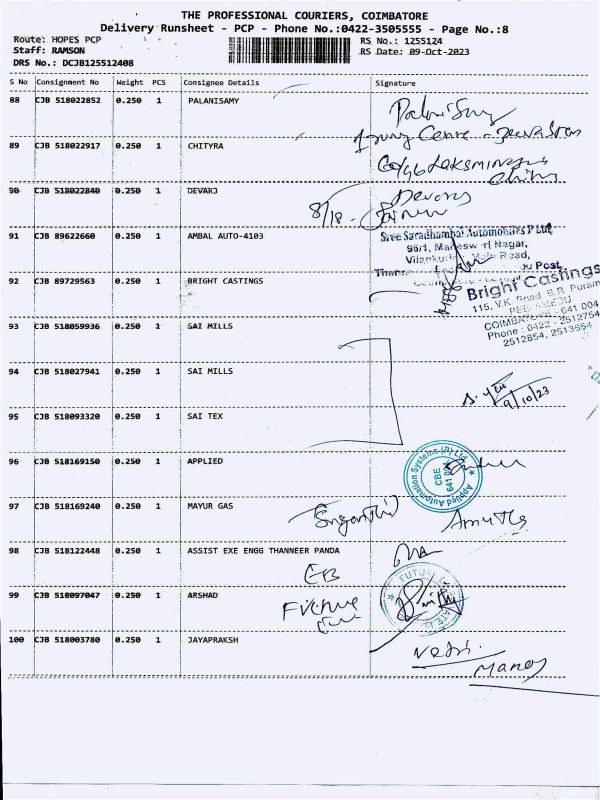 THE PROFESSIONAL COURIERS, COIMBATORE
Delivery Runsheet - PCP - Phone No.:0422-3505555 - Page No.:8
Route: HOPES PCP RS No.: 1255124
Staff: RAMSON RS Date: 09-Oct-2023
DRS No.: DCJB125512408
S No Consignment No Weight PCS Consignee Details Signature
88 CJB 518022852 0.250 1 PALANISAMY
Palanisamy
89 CJB 518022917 0.250 1 CHITYRA
90 CJB 518022840 0.250 1 DEVARJ
Devaraj
8/18.
91 CJB 89622660 0.250 1 AMBAL AUTO-4103
Sree Saradhambal Automobiles P Ltd
98/1, Maheswari Nagar,
Road,
Post,
92 CJB 89729563 0.250 1 BRIGHT CASTINGS
Bright Castings
115, V.K. Road, S.R. Puram
COIMBATORE - 641 004
Phone : 0422 - 2512754
2512854, 2513654
93 CJB 518059936 0.250 1 SAI MILLS
94 CJB 518027941 0.250 1 SAI MILLS
9/10/23
95 CJB 518093320 0.250 1 SAI TEX
96 CJB 518169150 0.250 1 APPLIED
Applied Automation Systems (P) Ltd
CBE
641 004
97 CJB 518169240 0.250 1 MAYUR GAS
Amutha
98 CJB 518122448 0.250 1 ASSIST EXE ENGG THANNEER PANDA
EB
99 CJB 518097047 0.250 1 ARSHAD
Future
FUTURE
100 CJB 518003780 0.250 1 JAYAPRAKSH
Manoj